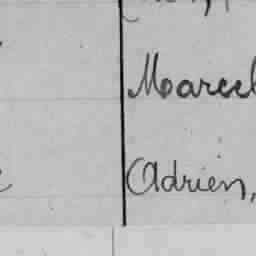 Marcel
Adrien,